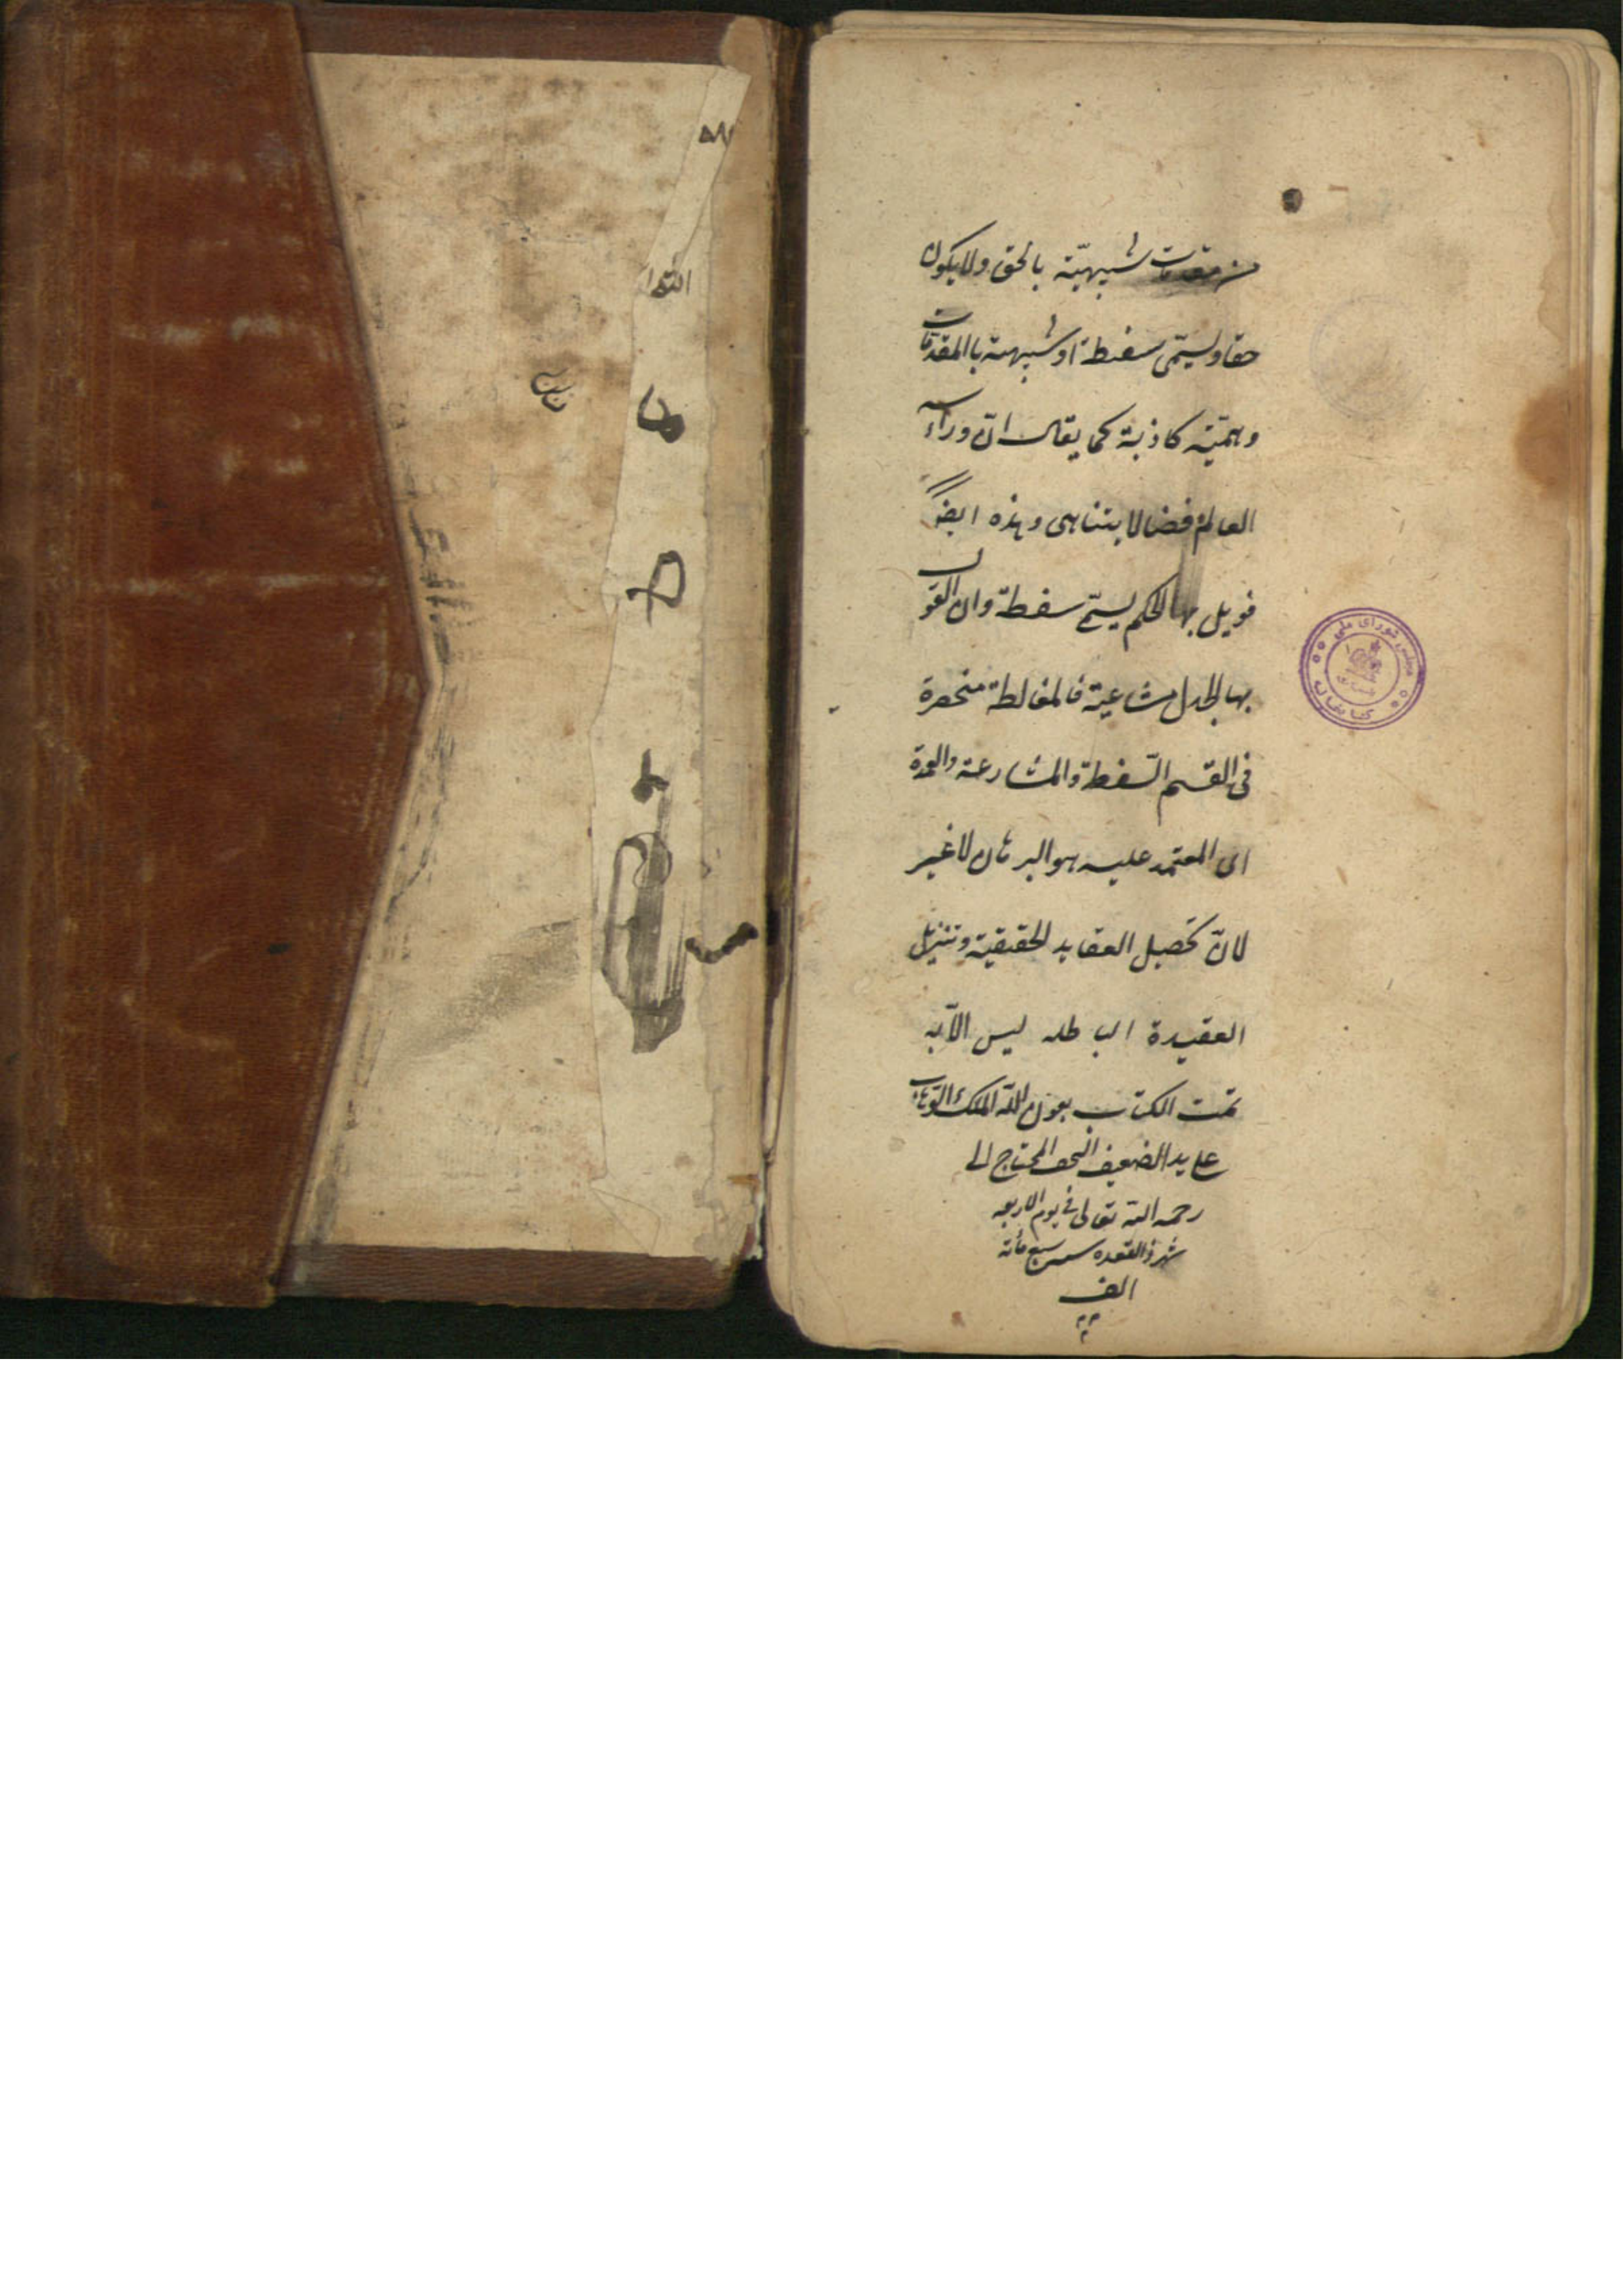 من مقدمات شبيهيّة بالحق ولا يكون
حقا ويسمّى سفسطة او شبيهية باالمقدمات
وهميّة كاذبة كما يقال انّ وراء
العالم فضا لا يتناهى وهذه ايضا
قوبل بها الحكيم يسمّى سفسطة وان القول
بها الجدل مشاغبة فالمغالطة منحصرة
فى القسم السّفسطة والمشارعة والعمدة
اى المعتمد عليه هو البرهان لا غير
لانّ تحصيل العقايد الحقيقية وتنزيل
العقيدة الباطله ليس الّا به
تمت الكتاب بعون الله الملك التوّاب
على يد الضعيف النحيف المحتاج الى
رحمة الله تعالى فى يوم الاربعه
شهر ذالقعده سبع مائة
الف
مجلس شورای ملی
کتابخانه